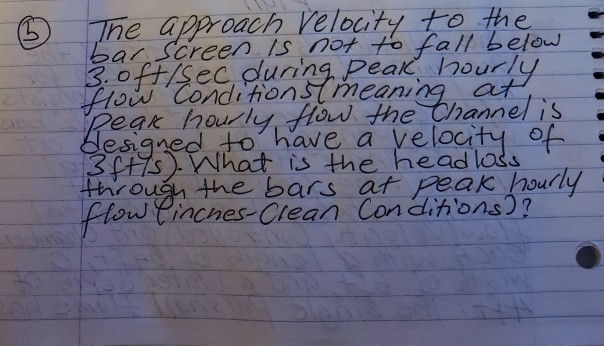 5 The approach velocity to the
bar screen is not to fall below
3.0ft/sec during peak hourly
flow conditions (meaning at
peak hourly flow the channel is
designed to have a velocity of
3ft/s). What is the headloss
through the bars at peak hourly
flow (inches-Clean Conditions)?